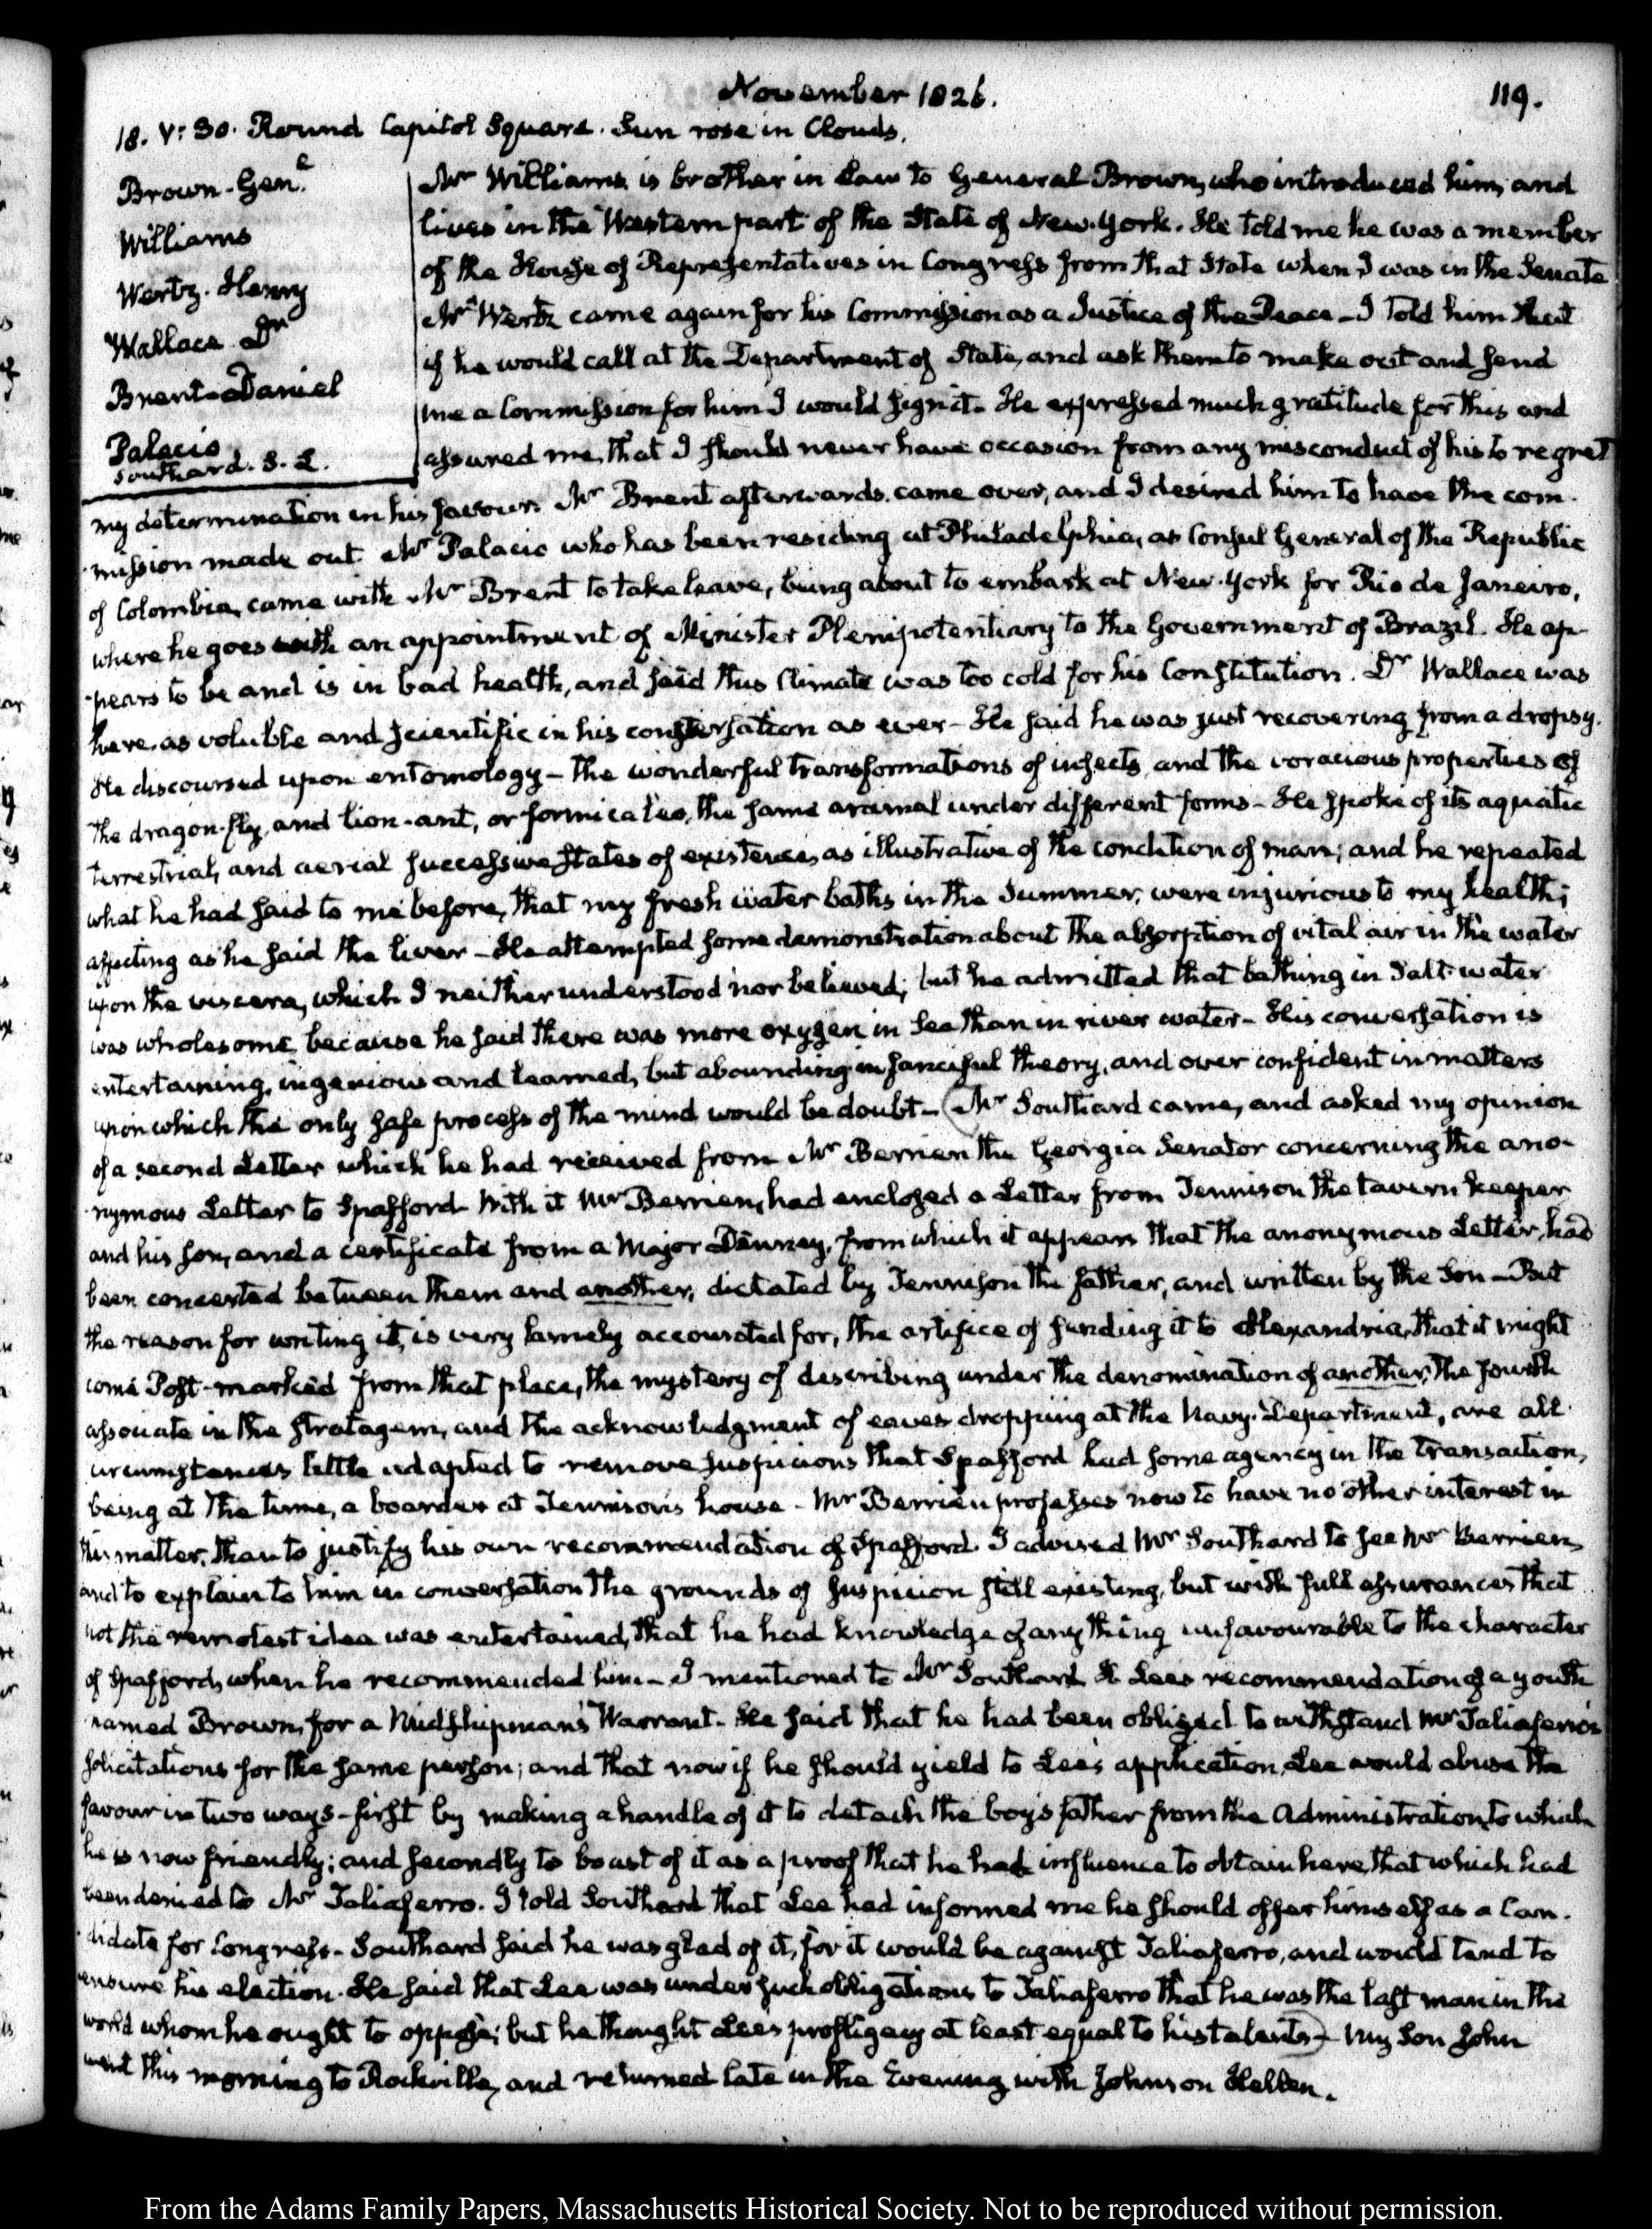 November 1826.
119.
18. V: 30. Round Capitol Square. Sun rose in Clouds.
Brown. Genl.
Williams
Wertz. Henry
Wallace Dr
Brent—Daniel
Palacio
Southard. S. L.
Mr Williams is brother in Law to General Brown, who introduced him, and
lives in the Western part of the State of New-York. He told me he was a member
of the House of Representatives in Congress from that State when I was in the Senate
Mr Wertz came again for his Commission as a Justice of the Peace—I told him that
if he would call at the Department of State, and ask them to make out and send
me a Commission for him I would sign it. He expressed much gratitude for this and
assured me, that I should never have occasion from any misconduct of his to regret
my determination in his favour. Mr Brent afterwards came over, and I desired him to have the com-
mission made out Mr Palacio who has been residing at Philadelphia, as Consul General of the Republic
of Colombia, came with Mr Brent to take leave, being about to embark at New-York for Rio de Janeiro,
where he goes with an appointment of Minister Plenipotentiary to the Government of Brazil. He ap-
-pears to be and is in bad health, and said this Climate was too cold for his Constitution. Dr Wallace was
here, as voluble and scientific in his conversation as ever—He said he was just recovering from a dropsy.
He discoursed upon entomology—the wonderful transformations of insects, and the voracious properties of
the dragon-fly, and lion-ant, or formicaleo, the same animal under different forms—He spoke of its aquatic
terrestrial, and aerial successive states of existence, as illustrative of the condition of man; and he repeated
what he had said to me before, that my fresh water baths in the Summer, were injurious to my health;
affecting as he said the liver—He attempted some demonstration about the absorption of vital air in the water
upon the viscera, which I neither understood nor believed; but he admitted that bathing in Salt-water
was wholesome, because he said there was more oxygen in Sea than in river water—His conversation is
entertaining, ingenious and learned, but abounding in fanciful theory, and over confident in matters
upon which the only safe process of the mind would be doubt—(Mr Southard came, and asked my opinion
of a second Letter which he had received from Mr Berrien the Georgia Senator concerning the ano-
-nymous Letter to Spafford. With it Mr Berrien, had enclosed a Letter from Tennison the tavern keeper
and his son, and a certificate from a Major, from which it appears that the anonymous Letter, had
been concerted between them and another, dictated by Tennison the father, and written by the Son—But
the reason for writing it, is very lamely accounted for, the artifice of sending it to Alexandria, that it might
come Post-marked from that place, the mystery of describing under the denomination of another, the fourth
associate in the stratagem, and the acknowledgment of eaves dropping at the Navy-Department, are all
circumstances little adapted to remove suspicions that Spafford had some agency in the transaction,
being at the time, a boarder at Tennison's house—Mr Berrien professes now to have no other interest in
this matter, than to justify his own recommendation of Spafford. I advised Mr Southard to see Mr Berrien,
and to explain to him in conversation the grounds of suspicion still existing, but with full assurances that
not the remotest idea was entertained, that he had knowledge of any thing unfavourable to the character
of Spafford, when he recommended him—I mentioned to Mr Southard H Lees recommendation of a youth
named Brown, for a Midshipman's Warrant. He said that he had been obliged to withstand Mr Taliaferro's
solicitations for the same person; and that now if he should yield to Lee's application, Lee would abuse the
favour in two ways—first by making a handle of it to detach the boy's father from the Administration, to which
he is now friendly; and secondly to boast of it as a proof that he had influence to obtain here, that which had
been denied to Mr Taliaferro. I told Southard that Lee had informed me he should offer himself as a Can-
-didate for Congress—Southard said he was glad of it, for it would be against Taliaferro, and would tend to
ensure his election. He said that Lee was under such obligations to Taliaferro that he was the last man in the
world whom he ought to oppose; but he thought Lees profligacy at least equal to his talents)—My Son John
went this morning to Rockville, and returned late in the Evening with Johnson Hellen.
From the Adams Family Papers, Massachusetts Historical Society. Not to be reproduced without permission.